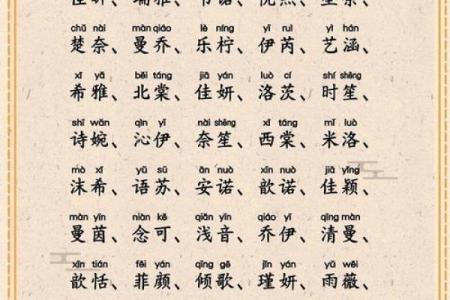 chǔ nài màn qiáo lè níng yī ruì yì hán
楚奈、曼乔、乐柠、伊芮、艺涵、
xī yǎ běi táng jiā yán luò cí shí shēng
希雅、北棠、佳妍、洛茨、时笙、
shī wǎn qìn yī nài shēng xī táng mǐ luò
诗婉、沁伊、奈笙、西棠、米洛、
mò xī yǔ sū ān nuò xīn nuò jiā yǐng
沫希、语苏、安诺、歆诺、佳颖、
màn yīn niàn kě qiǎn yīn qiáo yī qīng màn
曼茵、念可、浅音、乔伊、清曼、
xīn tián fēi yán qīng gē jǐn yán yǔ wēi
歆恬、菲颜、倾歌、瑾妍、雨薇、